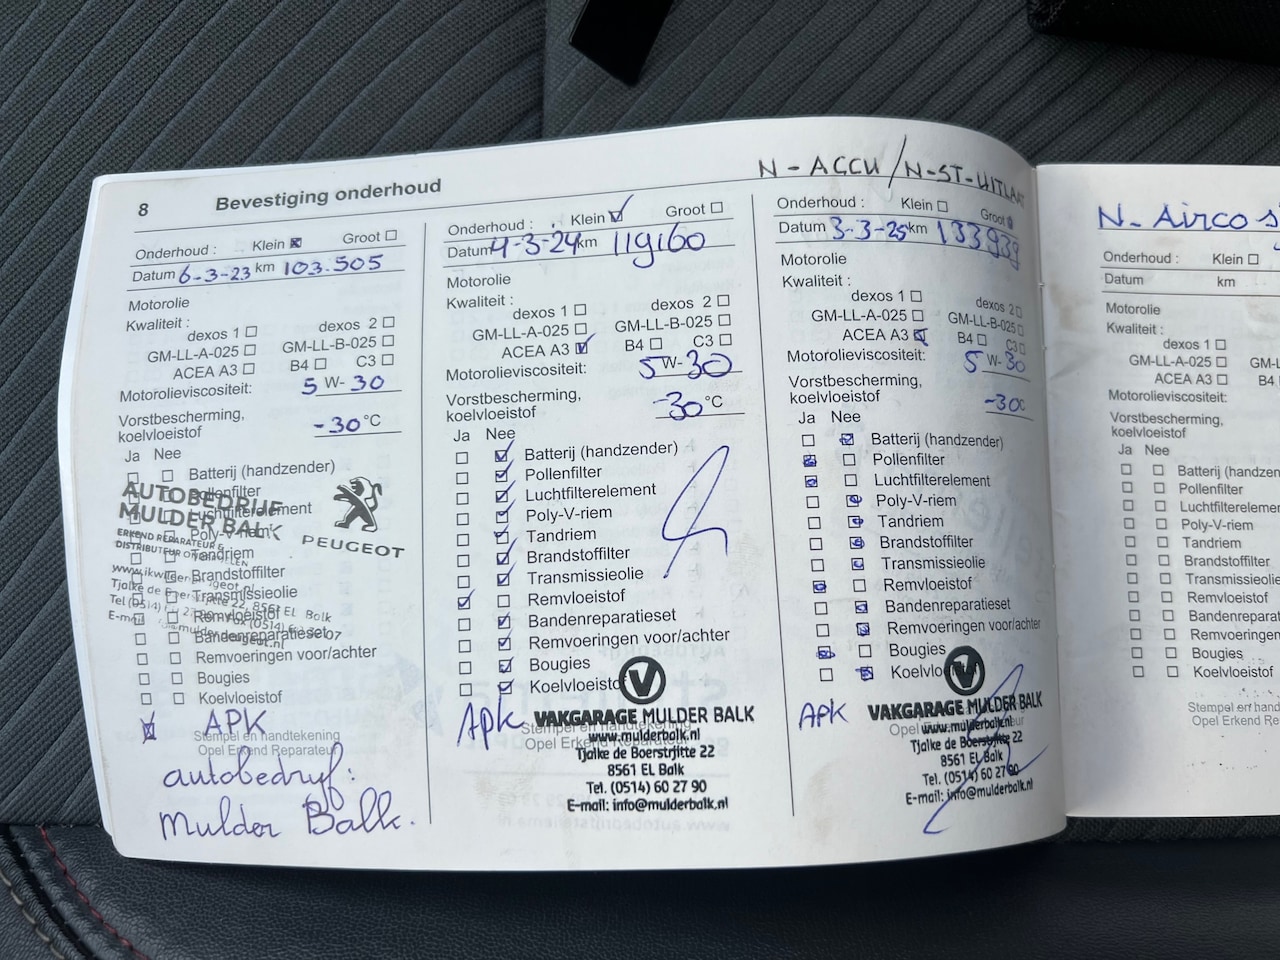 8 Bevestiging onderhoud
N-ACCU/N-ST-UITLAAT
Onderhoud : Klein Groot
Datum 6-3-23 km 103.505
Motorolie
Kwaliteit :
dexos 1 dexos 2
GM-LL-A-025 GM-LL-B-025
ACEA A3 B4 C3
Motorolieviscositeit: 5 W- 30
Vorstbescherming,
koelvloeistof -30 °C
Ja Nee
Batterij (handzender)
Pollenfilter
Luchtfilterelement
Poly-V-riem
Tandriem
Brandstoffilter
Transmissieolie
Remvloeistof
Bandenreparatieset
Remvoeringen voor/achter
Bougies
Koelvloeistof
AUTOBEDRIJF
MULDER BALK
PEUGEOT
ERKEND REPARATEUR &
Tjalke de 22, 8561 EL Balk
APK
Stempel en handtekening
Opel Erkend Reparateur
autobedrijf:
Mulder Balk.
Onderhoud : Klein Groot
Datum 4-3-24 km 119160
Motorolie
Kwaliteit :
dexos 1 dexos 2
GM-LL-A-025 GM-LL-B-025
ACEA A3 B4 C3
Motorolieviscositeit: 5 W- 30
Vorstbescherming,
koelvloeistof -30 °C
Ja Nee
Batterij (handzender)
Pollenfilter
Luchtfilterelement
Poly-V-riem
Tandriem
Brandstoffilter
Transmissieolie
Remvloeistof
Bandenreparatieset
Remvoeringen voor/achter
Bougies
Koelvloeistof
V
APK
VAKGARAGE MULDER BALK
Stempel en handtekening
www.mulderbalk.nl
Opel Erkend Reparateur
Tjalke de Boerstrjitte 22
8561 EL Balk
Tel. (0514) 60 27 90
E-mail: info@mulderbalk.nl
Onderhoud : Klein Groot
Datum 3-3-25 km 133939
Motorolie
Kwaliteit :
dexos 1 dexos 2
GM-LL-A-025 GM-LL-B-025
ACEA A3 B4 C3
Motorolieviscositeit: 5 W- 30
Vorstbescherming,
koelvloeistof -30 °C
Ja Nee
Batterij (handzender)
Pollenfilter
Luchtfilterelement
Poly-V-riem
Tandriem
Brandstoffilter
Transmissieolie
Remvloeistof
Bandenreparatieset
Remvoeringen voor/achter
Bougies
Koelvloeistof
V
APK
VAKGARAGE MULDER BALK
www.mulderbalk.nl
Tjalke de Boerstrjitte 22
8561 EL Balk
Tel. (0514) 60 27 90
E-mail: info@mulderbalk.nl
N-Airco
Onderhoud : Klein
Datum km
Motorolie
Kwaliteit :
dexos 1
GM-LL-A-025
ACEA A3 B4
Motorolieviscositeit:
Vorstbescherming,
koelvloeistof
Ja Nee
Batterij (handzen
Pollenfilter
Luchtfilterelemen
Poly-V-riem
Tandriem
Brandstoffilter
Transmissieolie
Remvloeistof
Bandenreparaties
Remvoeringen vo
Bougies
Koelvloeistof
Stempel en handteken
Opel Erkend Reparat